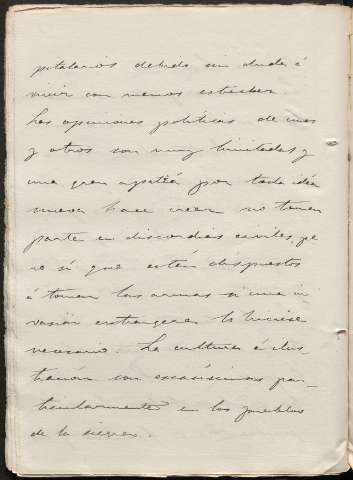 pitalarios debido sin duda á
vivir con menos estrechez.
Las opiniones políticas de unos
y otros son muy limitadas y
una gran apatía por toda idea
nueva hace creer no tomen
parte en discordias civiles, pe
ro sí que esten dispuestos
á tomar las armas si una in
vasión extrangera lo hiciese
necesario. La cultura é ilus
tración son escasísimas par_
ticularmente en los pueblos
de la sierra.